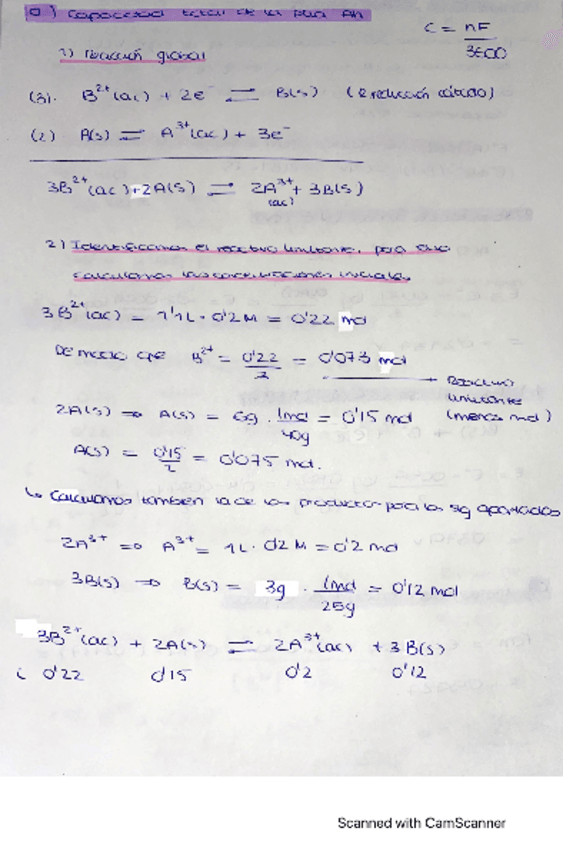 a) Capacidad total de la pila Ah
C = nF
3600
1) Reacción global
(3). B²⁺(ac) + 2e⁻ ⇌ B(s) (reducción cátodo)
(2) A(s) ⇌ A³⁺(ac) + 3e⁻
3B²⁺(ac) + 2A(s) ⇌ 2A³⁺ + 3B(s)
(ac)
2) Identificamos el reactivo limitante, para ello
calculamos las iniciales
3B²⁺(ac) = 1'1L · 0'2M = 0'22 mol
De modo que B²⁺ = 0'22 = 0'073 mol
3
Reactivo
limitante
(menos mol)
2A(s) ⇒ A(s) = 6g · 1mol = 0'15 mol
40g
A(s) = 0'15 = 0'075 mol.
2
↳ Calculamos también la de los productos para los sig apartados
2A³⁺ ⇒ A³⁺ = 1L · 0'2 M = 0'2 mol
3B(s) ⇒ B(s) = 3g · 1mol = 0'12 mol
25g
3B²⁺(ac) + 2A(s) ⇌ 2A³⁺(ac) + 3B(s)
i 0'22 0'15 0'2 0'12
Scanned with CamScanner